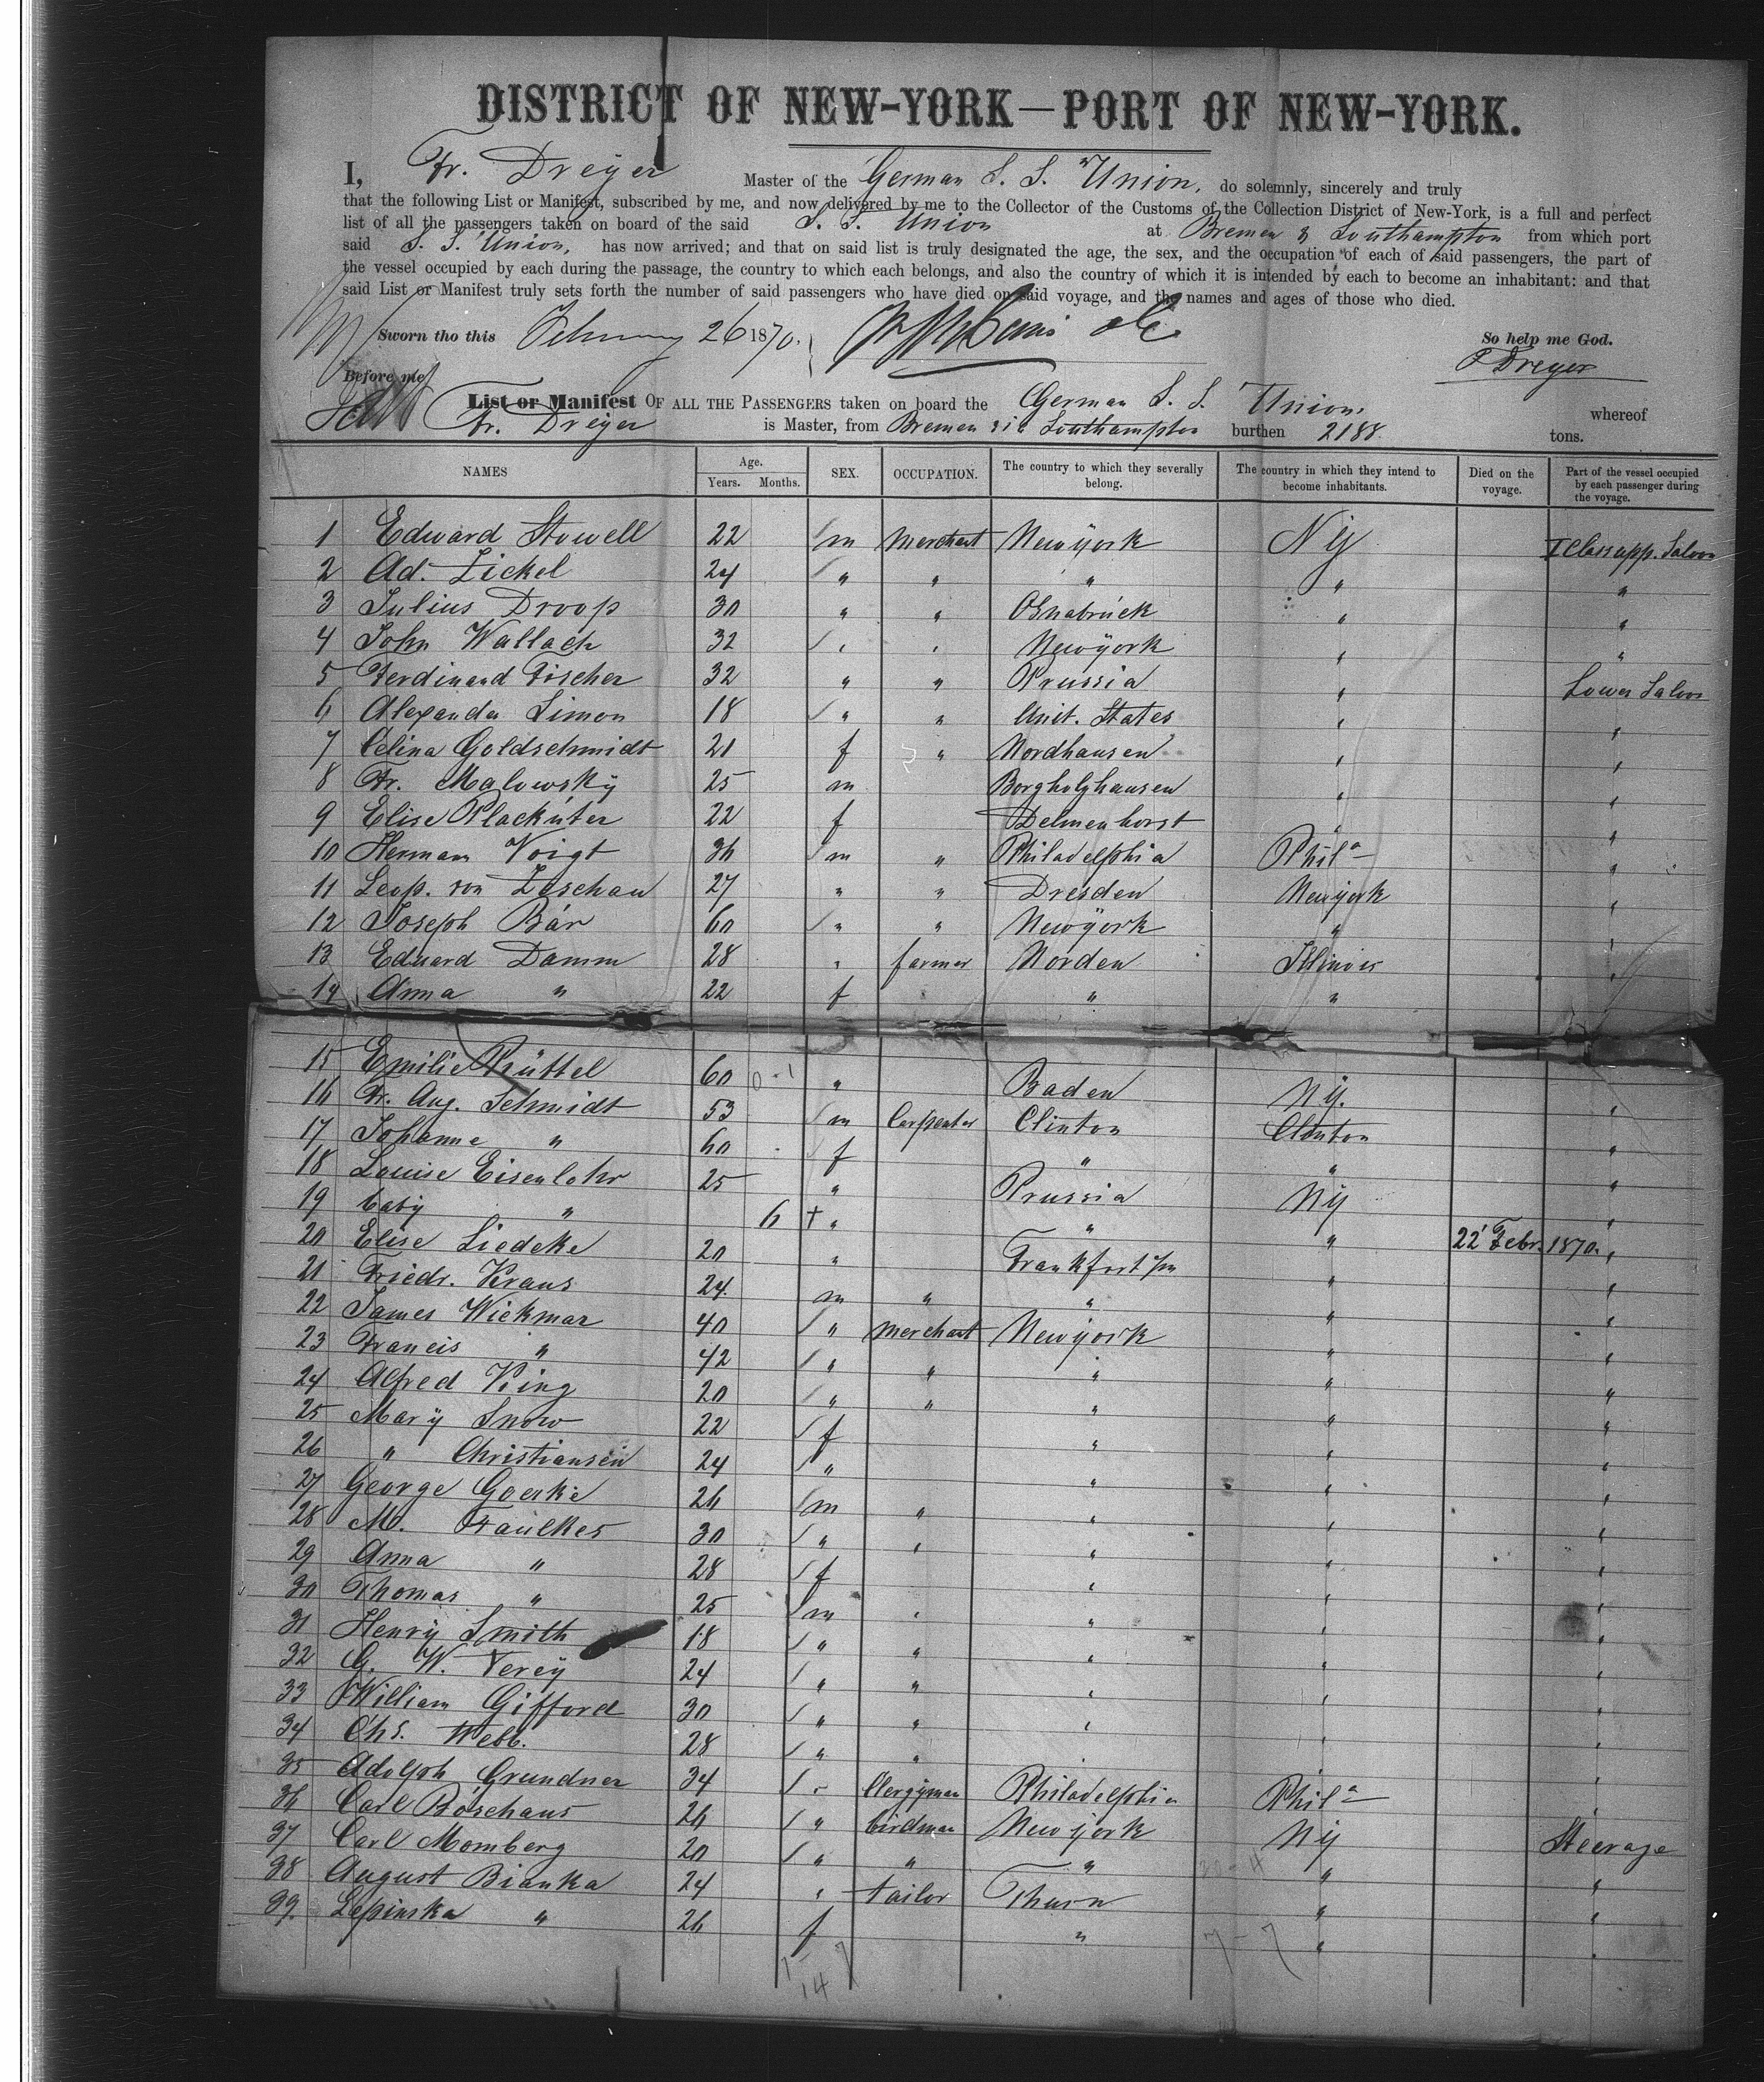 DISTRICT OF NEW-YORK—PORT OF NEW-YORK.
I, Fr. Dreyer Master of the German S. S. "Union, do solemnly, sincerely and truly
that the following List or Manifest, subscribed by me, and now delivered by me to the Collector of the Customs of the Collection District of New-York, is a full and perfect
list of all the passengers taken on board of the said S. S. Union at Bremen & Southampton from which port
said S. S. Union, has now arrived; and that on said list is truly designated the age, the sex, and the occupation of each of said passengers, the part of
the vessel occupied by each during the passage, the country to which each belongs, and also the country of which it is intended by each to become an inhabitant: and that
said List or Manifest truly sets forth the number of said passengers who have died on said voyage, and the names and ages of those who died.
Sworn tho this February 26 1870. So help me God.
Before me Dreyer
List or Manifest OF ALL THE PASSENGERS taken on board the German S. S. Union, whereof
Fr. Dreyer is Master, from Bremen via Southampton burthen 2188 tons.
NAMES Age. Years. Months. SEX. OCCUPATION. The country to which they severally belong. The country in which they intend to become inhabitants. Died on the voyage. Part of the vessel occupied by each passenger during the voyage.
1 Edward Stowell 22 m merchant Newyork Ny I Class upp. Saloon
2 Ad. Zickel 24 " " " " "
3 Julius Droop 30 " " Osnabrück " "
4 John Wallach 32 " " Newyork " "
5 Ferdinand Fischer 32 " " Prussia " Lower Saloon
6 Alexander Simon 18 " " Unit. States " "
7 Celina Goldschmidt 21 f " Nordhausen " "
8 Fr. Malowsky 25 m Borgholzhausen " "
9 Elise Plackúter 22 f Delmenhorst " "
10 Herman Voigt 36 m " Philadelphia Phila "
11 Leop. von Zeschau 27 " " Dresden Newyork "
12 Joseph Bär 60 " " Newyork " "
13 Eduard Damm 28 " farmer Norden Illinois "
14 Anna " 22 f " "
15 Emilie Rüttel 60 " Baden Ny. "
16 Fr. Aug. Schmidt 53 m Carpenter Clinton Clinton "
17 Johanne " 60 f " " "
18 Louise Eisenlohr 25 " Prussia Ny "
19 baby " 6 † " " " 22' Febr. 1870. "
20 Elise Liedeke 20 " Frankfort a/m " "
21 Friedr. Kraus 24 m " " " "
22 James Wickmar 40 " merchant Newyork " "
23 Francis " 42 " " " " "
24 Alfred King 20 " " " " "
25 Mary Snow 22 f " " "
26 " Christiansen 24 " " " "
27 George Goerke 26 m " " " "
28 M. Faulkes 30 " " " " "
29 Anna " 28 f " " "
30 Thomas " 25 m " " " "
31 Henry Smith 18 " " " " "
32 G. W. Verey 24 " " " " "
33 William Gifford 30 " " " " "
34 Chs. Webb. 28 " " " " "
35 Adolph Grundner 34 " Clergyman Philadelphia Phila "
36 Carl Böschaus 26 " birdman Newyork Ny Steerage
37 Carl Momberg 20 " " " " "
38 August Bianka 24 " tailor Thurn " "
39. Lepinska " 26 f " " "
7 - 7
14